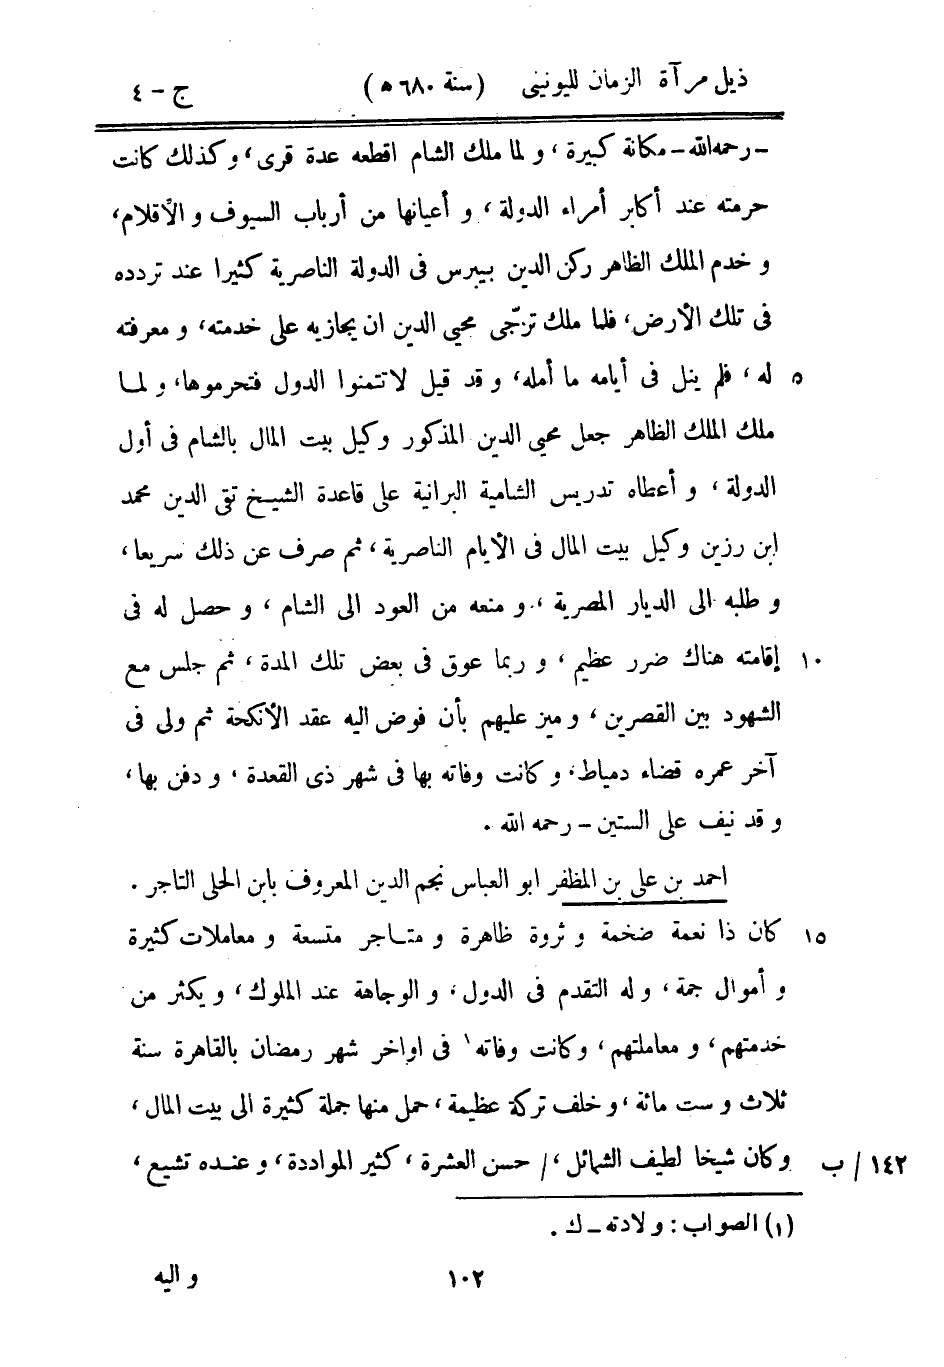 ذيل مرآة الزمان لليونينى (سنة ٦٨٠ ه) ج - ٤
- رحمه الله - مكانة كبيرة ، و لما ملك الشام اقطعه عدة قرى ، و كذلك كانت
حرمته عند أكابر أمراء الدولة ، و أعيانها من أرباب السيوف و الأقلام ،
و خدم الملك الظاهر ركن الدين بيبرس فى الدولة الناصرية كثيرا عند تردده
فى تلك الأرض ، فلما ملك ترجّى محيى الدين ان يجازيه على خدمته ، و معرفته
٥ له ، فلم ينل فى أيامه ما أمله ، و قد قيل لا تتمنوا الدول فتحرموها ، و لما
ملك الملك الظاهر جعل محيى الدين المذكور وكيل بيت المال بالشام فى أول
الدولة ، و أعطاه تدريس الشامية البرانية على قاعدة الشيخ تقى الدين محمد
ابن رزين وكيل بيت المال فى الأيام الناصرية ، ثم صرف عن ذلك سريعا ،
و طلبه الى الديار المصرية ، و منعه من العود الى الشام ، و حصل له فى
١٠ إقامته هناك ضرر عظيم ، و ربما عوق فى بعض تلك المدة ، ثم جلس مع
الشهود بين القصرين ، و ميز عليهم بأن فوض اليه عقد الأنكحة ثم ولى فى
آخر عمره قضاء دمياط ، و كانت وفاته بها فى شهر ذى القعدة ، و دفن بها ،
و قد نيف على الستين - رحمه الله .
احمد بن على بن المظفر ابو العباس نجم الدين المعروف بابن الحلى التاجر .
١٥ كان ذا نعمة ضخمة و ثروة ظاهرة و متاجر متسعة و معاملات كثيرة
و أموال جمة ، و له التقدم فى الدول ، و الوجاهة عند الملوك ، و يكثر من
خدمتهم ، و معاملتهم ، وكانت وفاته ١ فى اواخر شهر رمضان بالقاهرة سنة
ثلاث و ست مائة ، و خلف تركة عظيمة ، حمل منها جملة كثيرة الى بيت المال ،
١٤٢ / ب وكان شيخا لطيف الشمائل ، / حسن العشرة ، كثير المواددة ، و عنده تشيع ،
(١) الصواب : ولادته - ك .
١٠٢ و اليه